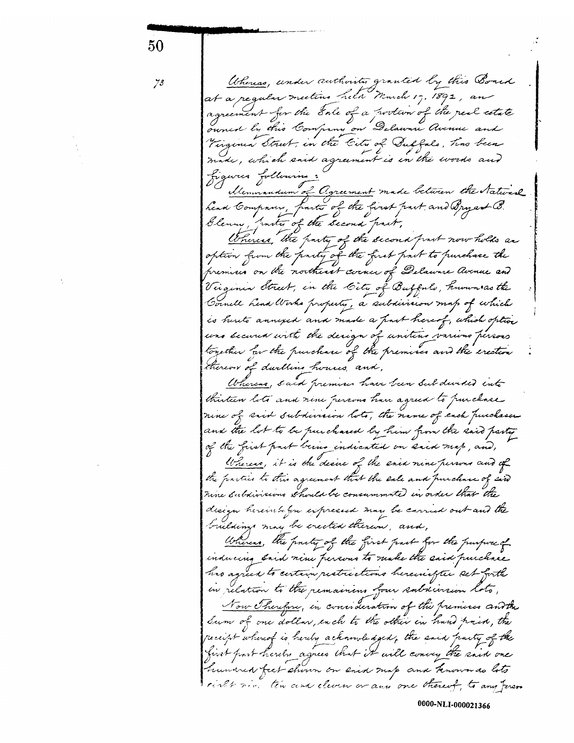 50
73
Whereas, under authority granted by this Board
at a regular meeting held March 17, 1892, an
agreement for the Sale of a portion of the real estate
owned by this Company on Delaware Avenue and
Virginia Street, in the City of Buffalo, has been
made, which said agreement is in the words and
figures following:
Memorandum of Agreement made between the National
Lead Company, party of the first part, and Bryant B.
Glenny, party of the second part,
Whereas, the party of the second part now holds an
option from the party of the first part to purchase the
premises on the northeast corner of Delaware Avenue and
Virginia Street, in the City of Buffalo, known as the
Cornell Lead Works property, a subdivision map of which
is hereto annexed and made a part hereof, which option
was secured with the design of uniting various persons
together for the purchase of the premises and the erection
thereon of dwelling houses, and,
Whereas, said premises have been subdivided into
thirteen lots and nine persons have agreed to purchase
nine of said subdivision lots, the name of each purchaser
and the lot to be purchased by him from the said party
of the first part being indicated on said map, and,
Whereas, it is the desire of the said nine persons and of
the parties to this agreement that the sale and purchase of said
nine subdivisions should be consummated in order that the
design hereinbefore expressed may be carried out and the
buildings may be erected thereon, and,
Whereas, the party of the first part for the purpose of
inducing said nine persons to make the said purchase
has agreed to certain restrictions hereinafter set forth
in relation to the remaining four subdivision lots,
Now Therefore, in consideration of the premises and the
sum of one dollar, each to the other in hand paid, the
receipt whereof is hereby acknowledged, the said party of the
first part hereby agrees that it will convey the said one
hundred feet shown on said map and known as lots
eight, nine, ten and eleven or any one thereof, to any person
0000-NLI-000021366